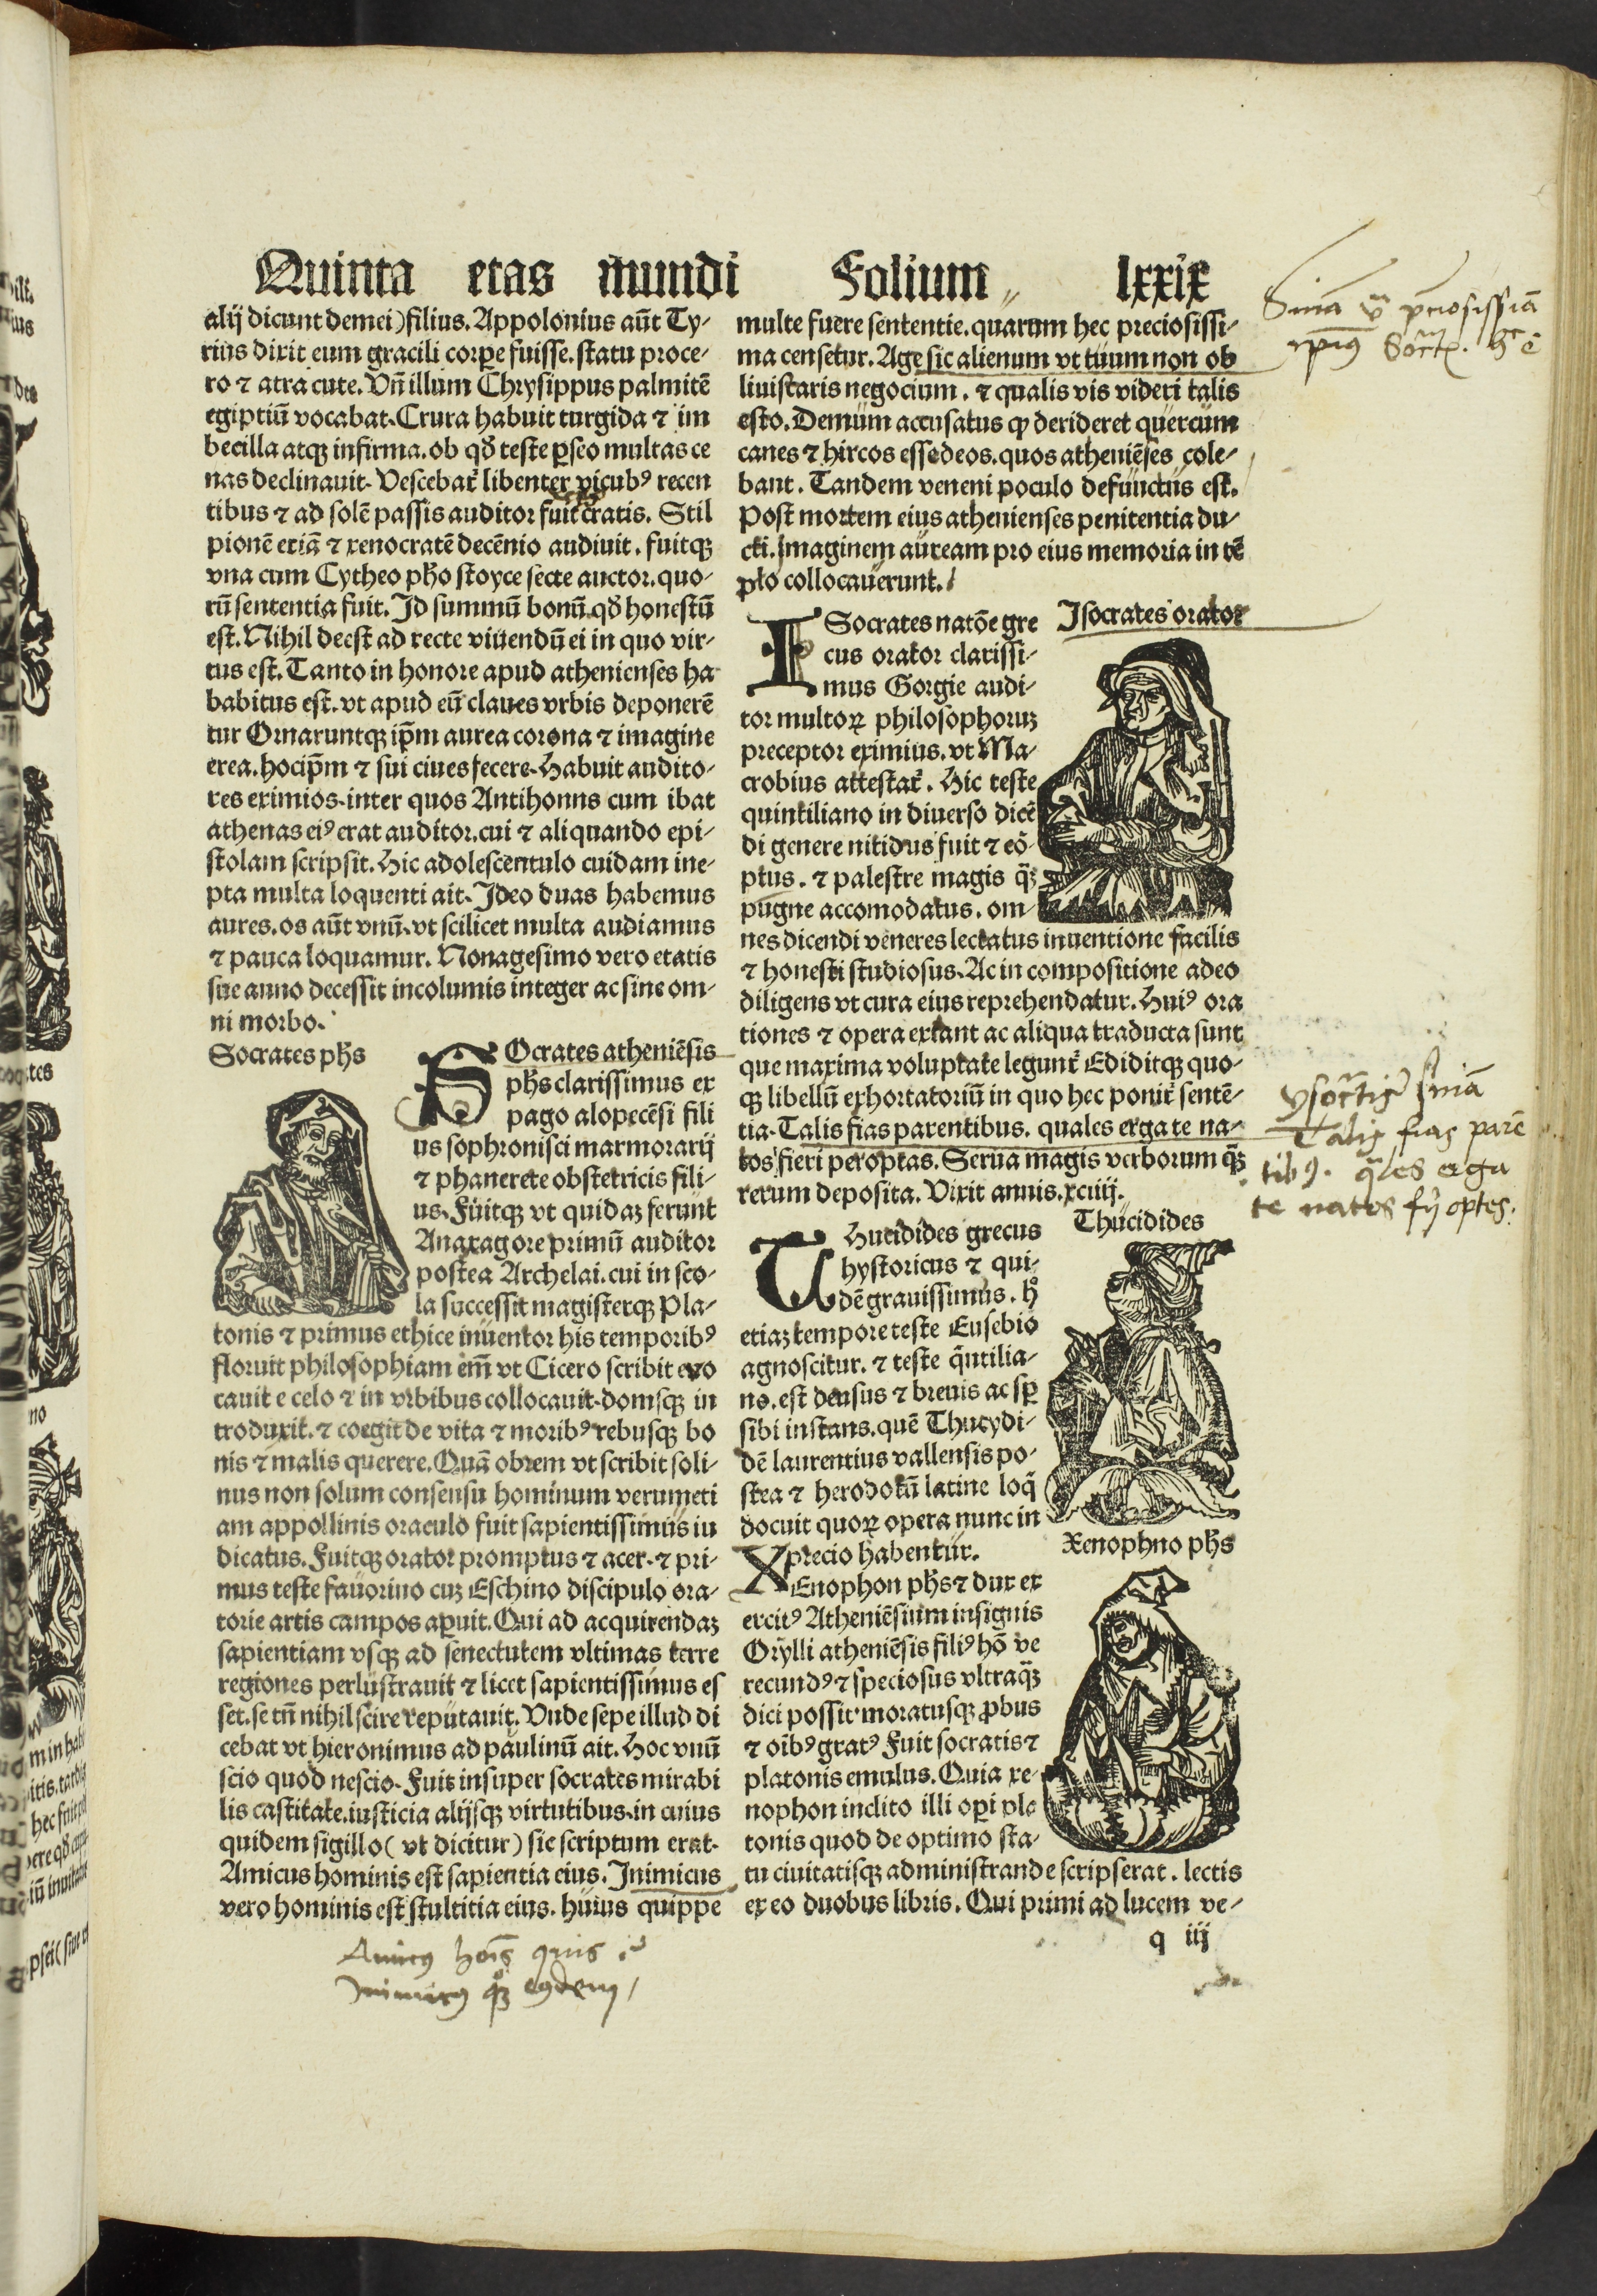 Quinta etas mundi Folium lxxix
alij dicunt demei) filius. Appolonius aūt Ty-
rius dixit eum gracili corꝑe fuisse. statu proce-
ro ⁊ atra cute. Vñ illum Chrysippus palmitē
egiptiū vocabat. Crura habuit turgida ⁊ im
becilla atqꝫ infirma. ob qď teste ꝑseo multas ce
nas declinauit. Vescebat᷑ libenter vicubꝰ recen
tibus ⁊ ad solē passis auditor fuit cratis. Stil
pionē etiā ⁊ xenocratē decēnio audiuit. fuitqꝫ
vna cum Cytheo pho stoyce secte auctor. quo-
rū sententia fuit. Id summū bonū qď honestū
est. Nihil deest ad recte viuendū ei in quo vir-
tus est. Tanto in honore apud athenienses ha
babitus est. vt apud eū claues vrbis deponerē
tur Ornaruntqꝫ ip̄m aurea corona ⁊ imagine
erea. hocip̄m ⁊ sui ciues fecere. Habuit audito-
res eximios. inter quos Antihonns cum ibat
athenas eiꝰ erat auditor. cui ⁊ aliquando epi-
stolam scripsit. Hic adolescentulo cuidam ine-
pta multa loquenti ait. Ideo duas habemus
aures. os aūt vnū. vt scilicet multa audiamus
⁊ pauca loquamur. Nonagesimo vero etatis
sue anno decessit incolumis integer ac sine om-
ni morbo.
Socrates phs
SOcrates atheniēsis
phs clarissimus ex
pago alopecēsi fili
us sophronisci marmorarij
⁊ phanerete obstetricis fili-
us. Fuitqꝫ vt quidaꝫ ferunt
Anaxagore primū auditor
postea Archelai. cui in sco-
la successit magisterqꝫ Pla-
tonis ⁊ primus ethice inuentor his temporibꝰ
floruit philosophiam em̄ vt Cicero scribit euo
cauit e celo ⁊ in vrbibus collocauit. domsqꝫ in
troduxit. ⁊ coegit de vita ⁊ moribꝰ rebusqꝫ bo
nis ⁊ malis querere. Quā obrem vt scribit soli-
nus non solum consensu hominum verumeti
am appollinis oraculo fuit sapientissimus iu
dicatus. Fuitqꝫ orator promptus ⁊ acer. ⁊ pri-
mus teste fauorino cuꝫ Eschino discipulo ora-
torie artis campos aꝑuit. Qui ad acquirendaꝫ
sapientiam vsqꝫ ad senectutem vltimas terre
regiones perlustrauit ⁊ licet sapientissimus es
set. se tñ nihil scire reputauit. Vnde sepe illud di
cebat vt hieronimus ad paulinū ait. Hoc vnū
scio quod nescio. Fuit insuper socrates mirabi
lis castitate. iusticia alijsqꝫ virtutibus. in cuius
quidem sigillo (vt dicitur) sic scriptum erat.
Amicus hominis est sapientia eius. Inimicus
vero hominis est stultitia eius. huius quippe
multe fuere sententie. quarum hec preciosissi-
ma censetur. Age sic alienum vt tuum non ob
liuiscaris negocium. ⁊ qualis vis videri talis
esto. Demum accusatus ꝙ derideret quercum
canes ⁊ hircos esse deos. quos atheniēses cole-
bant. Tandem veneni poculo defunctus est.
Post mortem eius athenienses penitentia du-
cti. Imaginem auream pro eius memoria in tē
plo collocauerunt.
Isocrates orator
ISocrates natōe gre
cus orator clarissi-
mus Gorgie audi-
tor multoꝝ philosophoruꝫ
preceptor eximius. vt Ma-
crobius attestat᷑. Hic teste
quintiliano in diuerso dicē
di genere nitidus fuit ⁊ cō-
ptus. ⁊ palestre magis q̄ꝫ
pugne accomodatus. om-
nes dicendi veneres lectatus inuentione facilis
⁊ honesti studiosus. Ac in compositione adeo
diligens vt cura eius reprehendatur. Huiꝰ ora
tiones ⁊ opera extant ac aliqua traducta sunt
que maxima voluptate legunt᷑ Ediditqꝫ quo-
qꝫ libellū exhortatoriū in quo hec ponit᷑ sentē-
tia. Talis fias parentibus. quales erga te na-
tos fieri peroptas. Serua magis verborum q̄ꝫ
rerum deposita. Vixit annis. xciiij.
Thucidides
THucidides grecus
hystoricus ⁊ qui-
dē grauissimus. h°
etiaꝫ tempore teste Eusebio
agnoscitur. ⁊ teste q̄ntilia-
no. est densus ⁊ breuis ac sꝑ
sibi instans. quē Thucydi-
dē laurentius vallensis po-
stea ⁊ herodotū latine loq̄
docuit quoꝝ opera nunc in
precio habentur.
Xenophno phs
XEnophon phs ⁊ dux ex
ercitꝰ Atheniēsium insignis
Grylli atheniēsis filiꝰ hō ve
recundꝰ ⁊ speciosus vltraq̄ꝫ
dici possit. moratusqꝫ ꝓbus
⁊ oībꝰ gratꝰ Fuit socratis ⁊
platonis emulus. Quia xe-
nophon inclito illi oꝑi pla
tonis quod de optimo sta-
tu ciuitatisqꝫ administrande scripserat. lectis
ex eo duobus libris. Qui primi ad lucem ve-
q iij
ysocrtis sn̄ia
Talis fias parē
tibꝰ. q̄les erga
te natos fij optes.